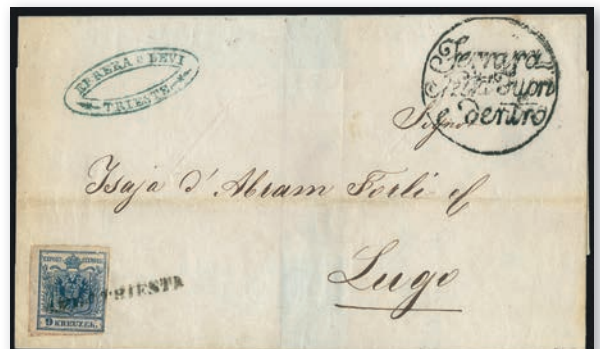 ERRERA E LEVI
TRIESTE
Ferrara
Netta Fuori
e dentro
Signor
Isaja d'Abram Forli
Lugo
TRIESTA
9 KREUZER.